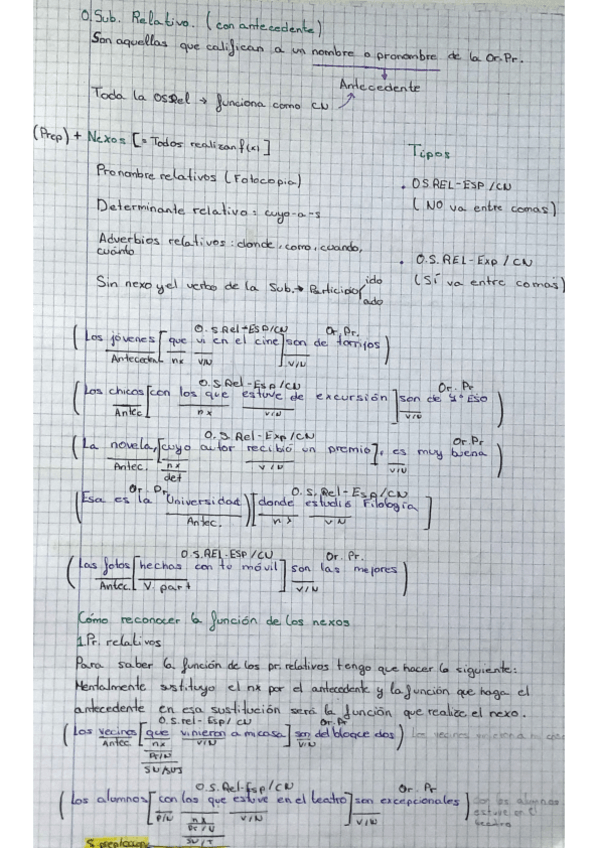 O.Sub. Relativo. (con antecedente)
Son aquellas que califican a un nombre o pronombre de la Or.Pr.
Antecedente
Toda la OSRel → funciona como CN
(Prep) + Nexos [= Todos realizan f(x)]
Tipos
Pronombre relativos (Fotocopia)
. OS.REL-ESP/CN
(NO va entre comas)
Determinante relativo: cuyo-a-s
Adverbios relativos: donde, como, cuando,
cuánto
. O.S.REL-Exp/CN
(Sí va entre comas)
Sin nexo y el verbo de la Sub. → Participio ido
ado
O.S Rel-ESP/CN Or.Pr.
(Los jóvenes [que vi en el cine] son de torrijos)
Antecedente nx V/N V/N
O.S Rel-Esp/CN Or.Pr
(Los chicos [con los que estuve de excursión] son de 4º ESO)
Antec nx V/N V/N
O.S. Rel-Exp/CN Or.Pr
(La novela, [cuyo autor recibió un premio], es muy buena)
Antec. nx V/N V/N
det
Or. Pr O.S. Rel-Esp/CN
(Esa es la Universidad) [donde estudié Filología]
Antec. nx V N
O.S.REL-ESP/CN Or.Pr.
(Las fotos [hechas con tu móvil] son las mejores)
Antec. V part V/N
Cómo reconocer la función de los nexos
1.Pr. relativos
Para saber la función de los pr. relativos tengo que hacer lo siguiente:
Mentalmente sustituyo el nx por el antecedente y la función que haga el
antecedente en esa sustitución será la función que realize el nexo.
O.S.rel-Esp/CN Or.Pr
(Los vecinos [que vinieron a mi casa] son del bloque dos) Los vecinos
Antec. nx V/N V/N
Pr/N
SN/SUJ
O.S.Rel-Esp/CN Or. Pr
(Los alumnos [con los que estuve en el teatro] son excepcionales) con los alumnos
estuve en el
teatro
P/N nx V/N V/N
Pr/N
SN/T